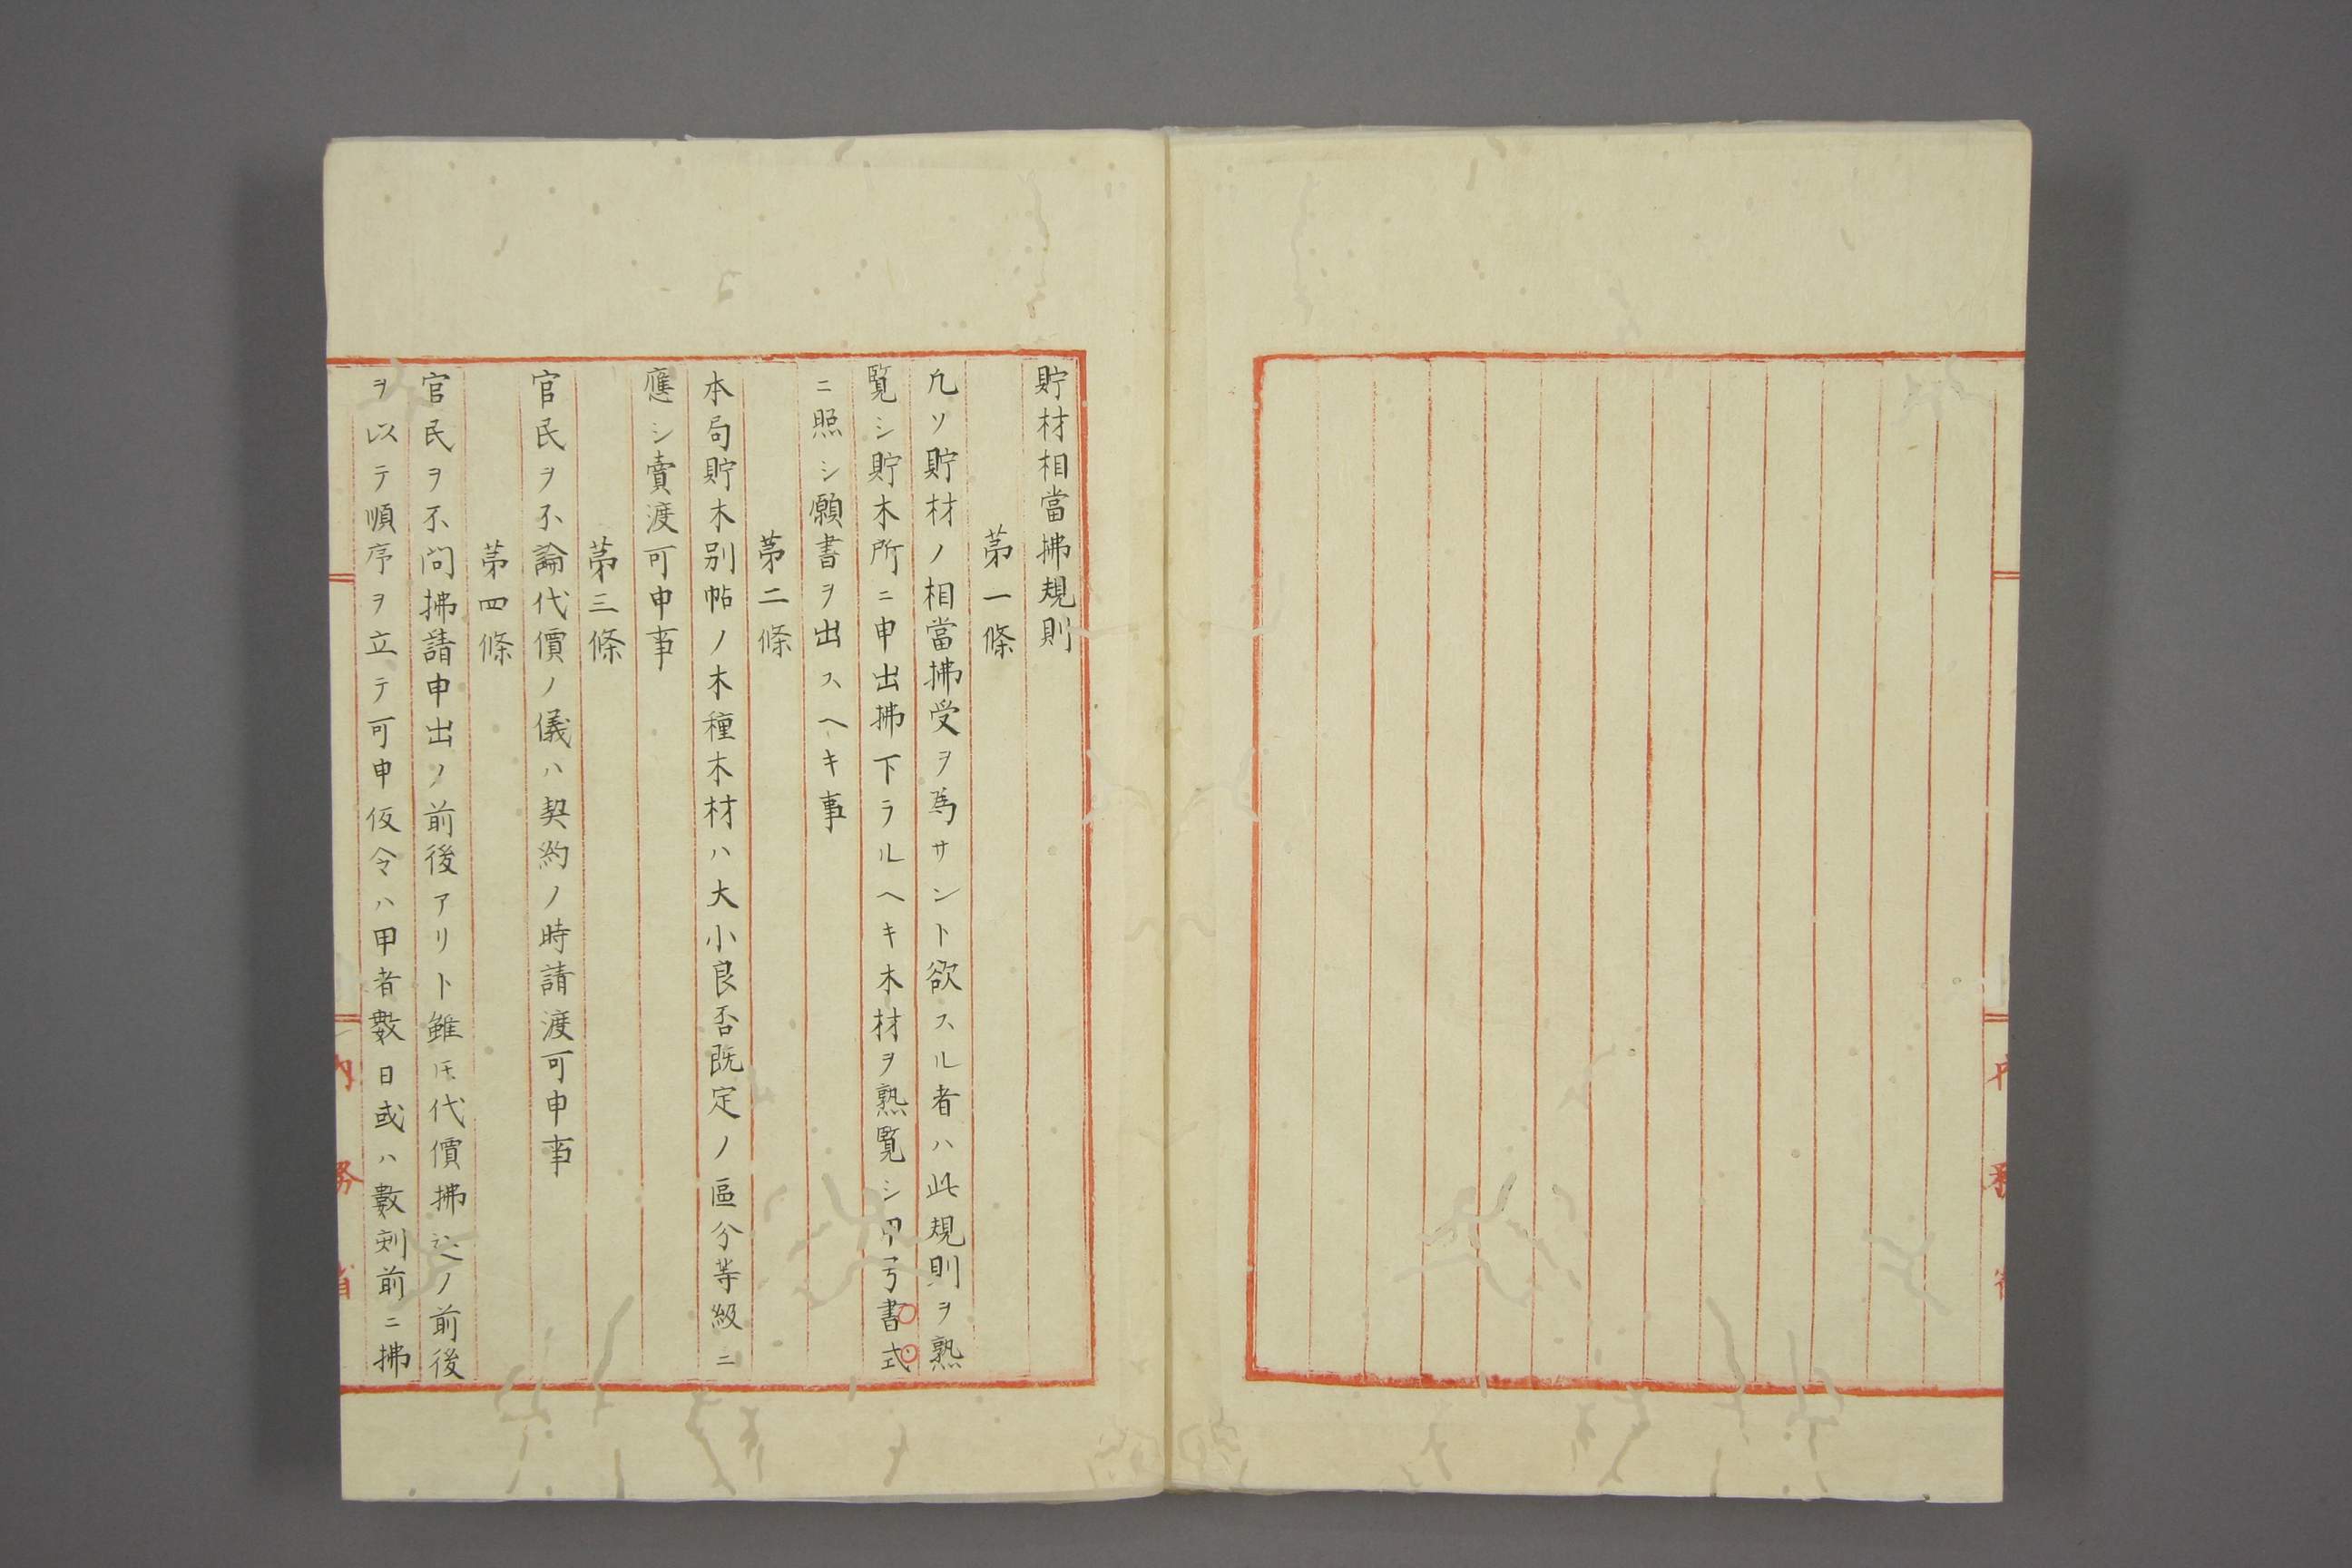 貯材相當拂規則
第一條
凢ソ貯材ノ相當拂受ヲ爲サント欲スル者ハ此規則ヲ熟
覧シ貯木所ニ申出拂下ラルヘキ木材ヲ熟覧シ甲号書式
ニ照シ願書ヲ出スヘキ事
第二條
本局貯木別帖ノ木種木材ハ大小良否既定ノ區分等級ニ
應シ賣渡可申事
第三條
官民ヲ不論代價ノ儀ハ契約ノ時請渡可申事
第四條
官民ヲ不問拂請申出ノ前後アリト雖𪜈代價拂込ノ前後
ヲ以テ順序ヲ立テ可申仮令ハ甲者數日或ハ數刻前ニ拂
内務省